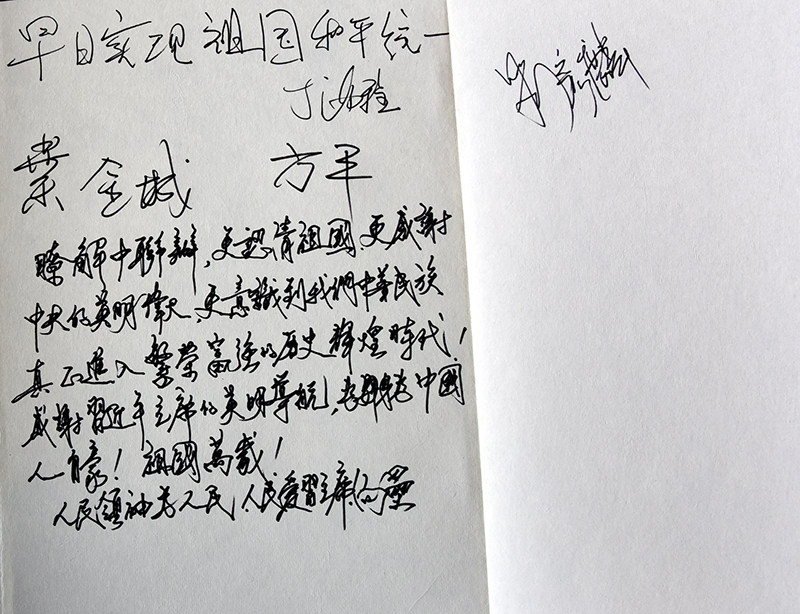 早日实现祖国和平统一
丁
金城 方平
瞭解中聯辦,更認清祖國,更感謝
中央的英明偉大,更意識到我們中華民族
真正進入繁荣富强的历史輝煌時代!
感謝習近平主席的英明導航,中國
人自豪!祖國萬歲!
人民領袖為人民,人民愛習主席